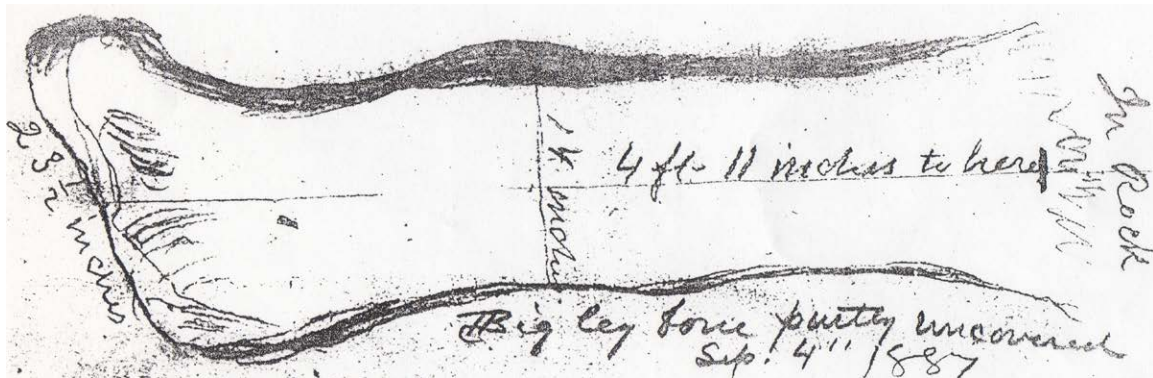 28 1/2 inches
14 inches
4 ft- 11 inches to here
In Rock
Big leg bone partly uncovered
Sep. 4" 1887